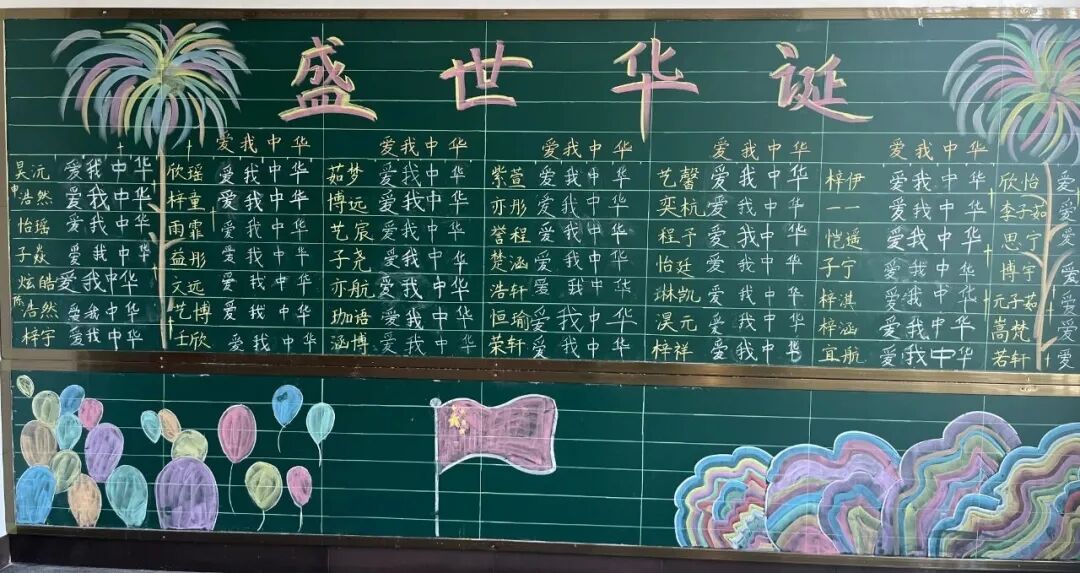 盛世华诞
爱我中华 爱我中华 爱我中华 爱我中华 爱我中华
昊沅 爱我中华 欣瑶 爱我中华 茹梦 爱我中华 紫萱 爱我中华 艺馨 爱我中华 梓伊 爱我中华 欣怡 爱
申浩然 爱我中华 梓童 爱我中华 博远 爱我中华 亦彤 爱我中华 奕杭 爱我中华 一一 爱我中华 李子茹 爱
怡瑶 爱我中华 雨霏 爱我中华 艺宸 爱我中华 誉程 爱我中华 程予 爱我中华 恺遥 爱我中华 思宁 爱
子焱 爱我中华 益彤 爱我中华 子尧 爱我中华 楚涵 爱我中华 怡廷 爱我中华 子宁 爱我中华 博宇 爱
炫皓 爱我中华 文远 爱我中华 亦航 爱我中华 浩轩 爱我中华 琳凯 爱我中华 梓淇 爱我中华 元子茹 爱
陈浩然 爱我中华 艺博 爱我中华 珈语 爱我中华 恒瑜 爱我中华 淏元 爱我中华 梓涵 爱我中华 嵩梵 爱
梓宇 爱我中华 壬欣 爱我中华 涵博 爱我中华 荣轩 爱我中华 梓祥 爱我中华 宜航 爱我中华 若轩 爱